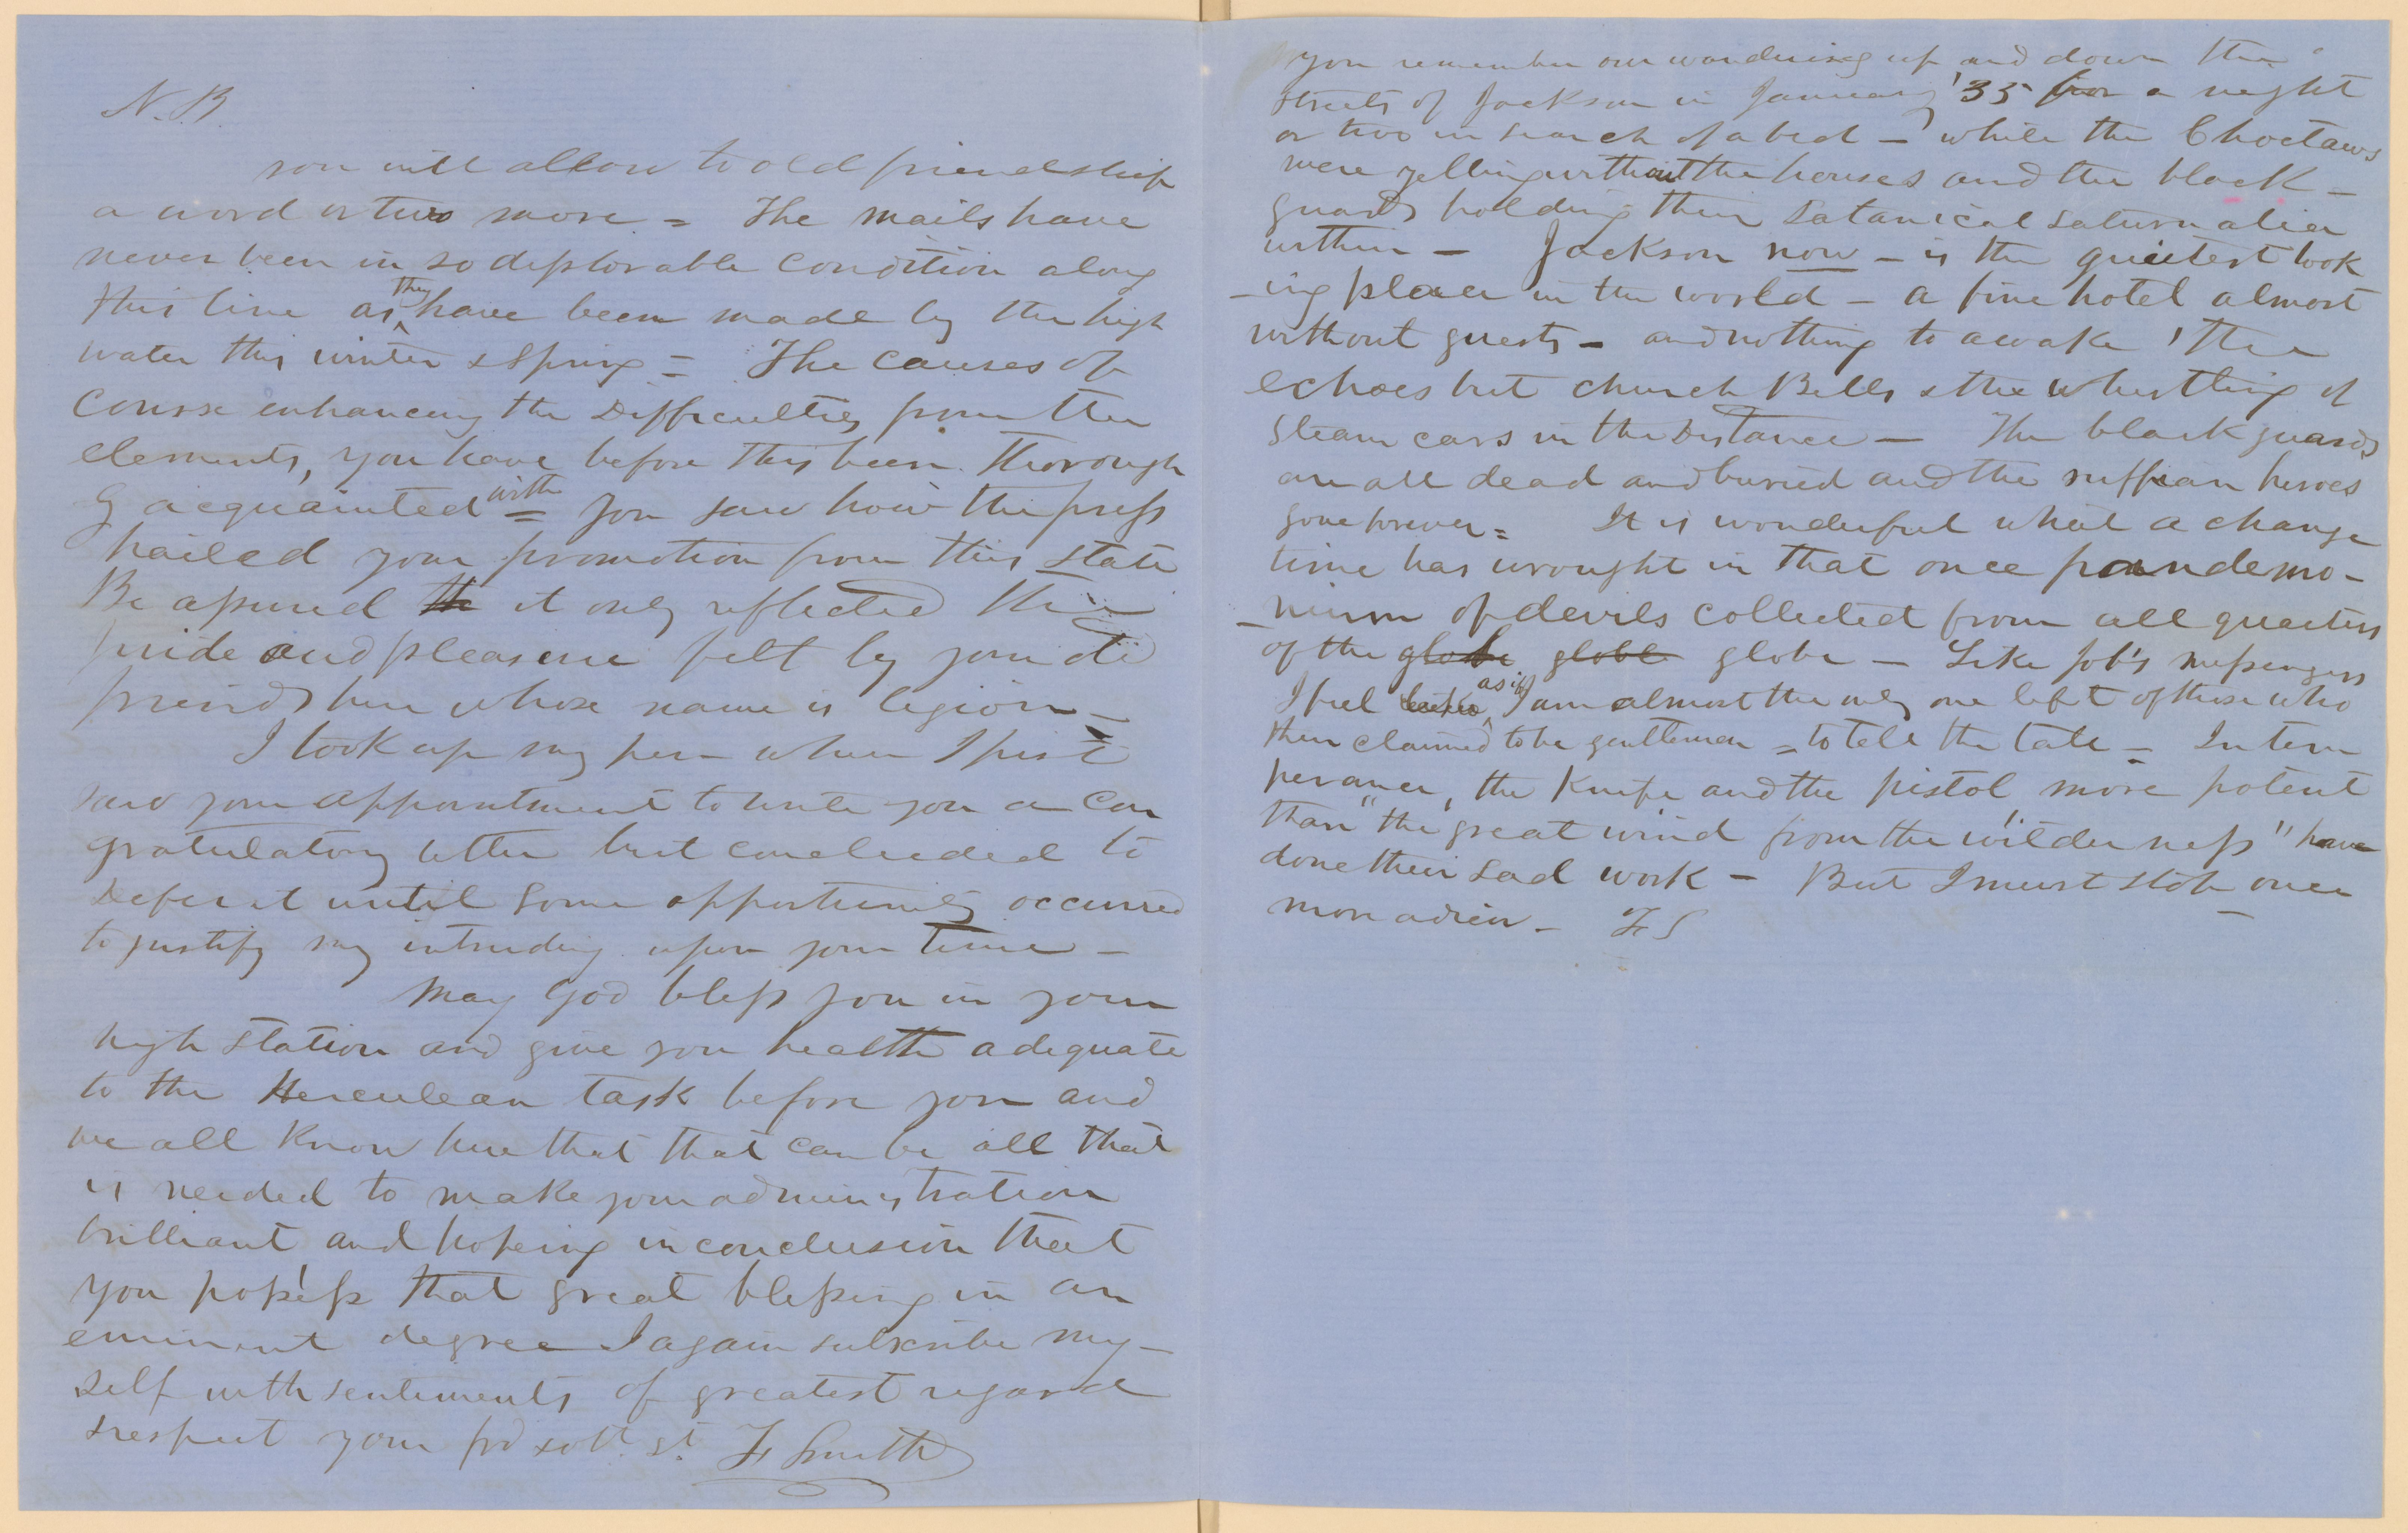 N.B.
you will allow to old friendship
a word or two more = The mails have
never been in so deplorable condition along
this line as they have been made by the high
water this winter & Spring = The causes of
course enhancing the Difficulties from the
elements, you have before this been thorough
ly acquainted with = you saw how the press
hailed your promotion from this State
Be assured th it only reflected the
pride and pleasure felt by your old
friends here whose name is legion =
I took up my pen when I first
saw your appointment to write you a con
gratulatory letter but concluded to
Defer it until some opportunity occurred
to justify my intruding upon your time -
May God bless you in your
high station and give you health adequate
to the Herculean task before you and
we all Know here that that can be all that
is needed to make your administration
brilliant and hoping in conclusion that
you possess that great blessing in an
eminent degree I again subscribe my-
self with sentiments of greatest regard
& respect your frd & obt. st. F Smith
you remember our wandering up and down the
streets of Jackson in January '35 for a night
or two in search of a bed - while the Choctaws
were yelling without the houses and the black-
guards holding their Satanical saturnalia
within - Jackson now - is the quietest look
-ing place in the world - a fine hotel almost
without guests - and nothing to awake the
echoes but church Bells & the whistling of
steam cars in the Distance - The blackguards
are all dead and buried and the ruffian heroes
gone forever = It is wonderful what a change
time has wrought in that once pandemo-
-nium of devils collected from all quarters
of the globe globe globe - Like Job's messengers
I feel as if I am almost the only one left of those who
then claimed to be gentlemen = to tell the tale - Intem
perance, the Knife and the pistol more potent
than "the great wind from the wilderness" have
done their sad work - But I must stop once
more adieu - F S